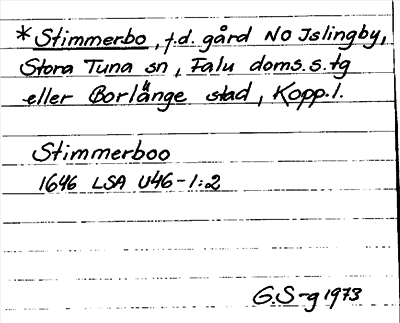 * Stimmerbo, f.d. gård NO Islingby,
Stora Tuna sn, Falu doms.s.tg
eller Borlänge stad, Kopp.l.
Stimmerboo
1646 LSA U46-1:2
G.S-g 1973